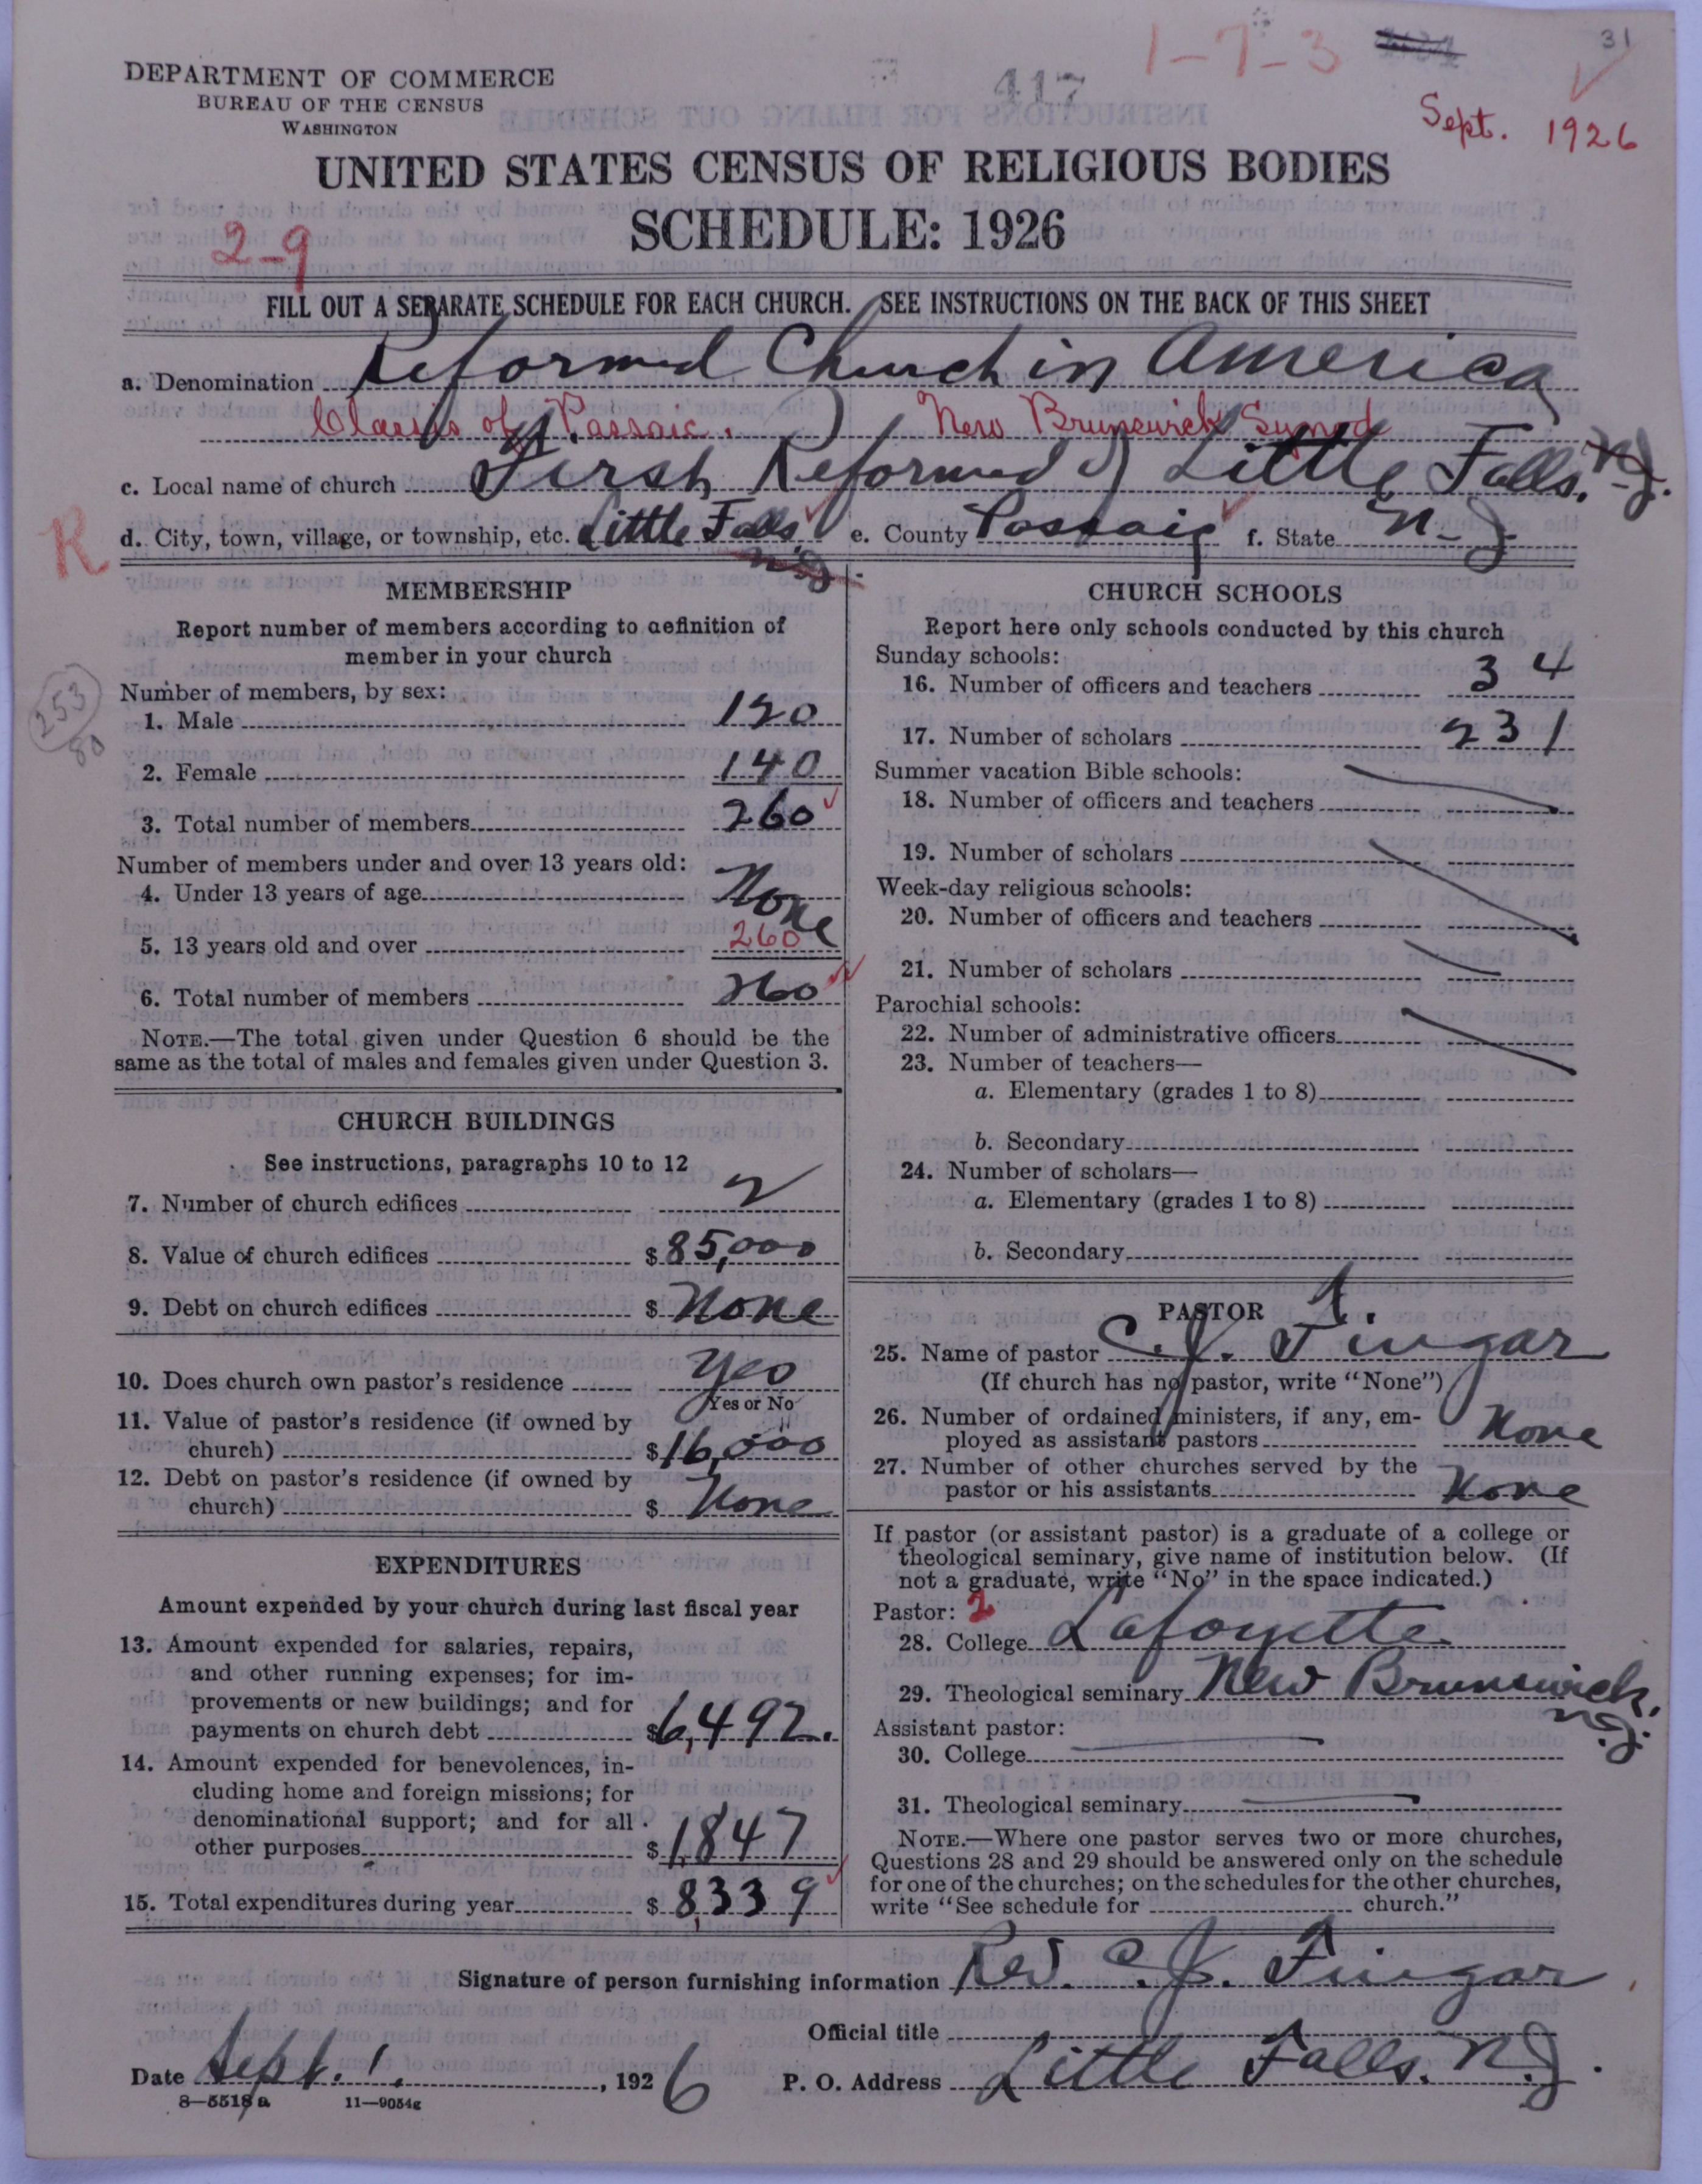 31
1-7-3
417
Sept. 1926
DEPARTMENT OF COMMERCE
BUREAU OF THE CENSUS
WASHINGTON
UNITED STATES CENSUS OF RELIGIOUS BODIES
SCHEDULE: 1926
2-9
FILL OUT A SEPARATE SCHEDULE FOR EACH CHURCH. SEE INSTRUCTIONS ON THE BACK OF THIS SHEET
a. Denomination Reformed Church in America
Classis of Passaic. New Brunswick Synod
c. Local name of church First Reformed of Little Falls. N.J.
R
d. City, town, village, or township, etc. Little Falls N.J. e. County Passaic f. State N-J-
MEMBERSHIP
Report number of members according to definition of
member in your church
253
80
Number of members, by sex:
1. Male 120
2. Female 140
3. Total number of members 260
Number of members under and over 13 years old:
4. Under 13 years of age None
5. 13 years old and over 260
6. Total number of members 260
NOTE.—The total given under Question 6 should be the
same as the total of males and females given under Question 3.
CHURCH BUILDINGS
See instructions, paragraphs 10 to 12
7. Number of church edifices 2
8. Value of church edifices $ 85,000
9. Debt on church edifices $ None
10. Does church own pastor's residence Yes
Yes or No
11. Value of pastor's residence (if owned by
church) $ 16,000
12. Debt on pastor's residence (if owned by
church) $ None
EXPENDITURES
Amount expended by your church during last fiscal year
13. Amount expended for salaries, repairs,
and other running expenses; for im-
provements or new buildings; and for
payments on church debt $ 6,492.
14. Amount expended for benevolences, in-
cluding home and foreign missions; for
denominational support; and for all
other purposes $ 1,847
15. Total expenditures during year $ 8,339
CHURCH SCHOOLS
Report here only schools conducted by this church
Sunday schools:
16. Number of officers and teachers 34
17. Number of scholars 231
Summer vacation Bible schools:
18. Number of officers and teachers
19. Number of scholars
Week-day religious schools:
20. Number of officers and teachers
21. Number of scholars
Parochial schools:
22. Number of administrative officers
23. Number of teachers—
a. Elementary (grades 1 to 8)
b. Secondary
24. Number of scholars—
a. Elementary (grades 1 to 8)
b. Secondary
PASTOR
25. Name of pastor C. J. Fingar
(If church has no pastor, write "None")
26. Number of ordained ministers, if any, em-
ployed as assistant pastors None
27. Number of other churches served by the
pastor or his assistants None
If pastor (or assistant pastor) is a graduate of a college or
theological seminary, give name of institution below. (If
not a graduate, write "No" in the space indicated.)
Pastor: 2
28. College Lafayette
29. Theological seminary New Brunswick, N.J.
Assistant pastor:
30. College
31. Theological seminary
NOTE.—Where one pastor serves two or more churches,
Questions 28 and 29 should be answered only on the schedule
for one of the churches; on the schedules for the other churches,
write "See schedule for church."
Signature of person furnishing information Rev. C. J. Fingar
Official title
Date Sept. 1. , 1926 P. O. Address Little Falls. N.J.
8—5518 a 11—9054g